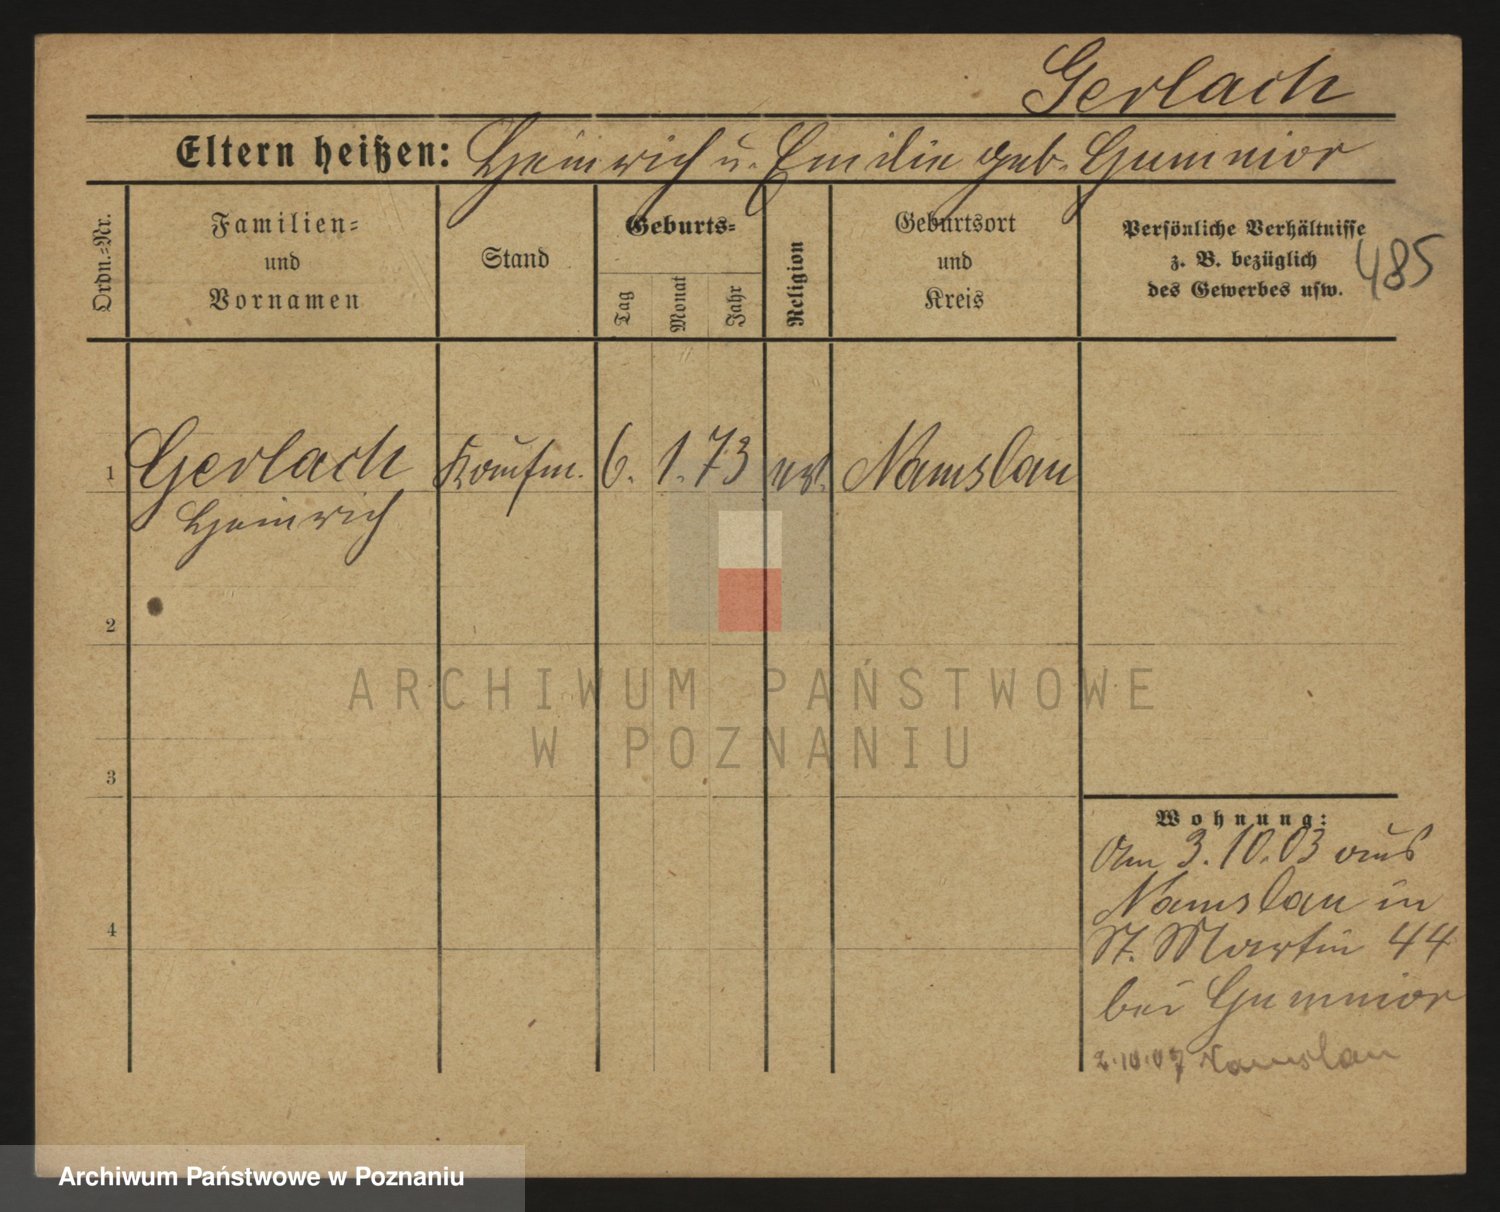 Gerlach
Eltern heißen: Heinrich u. Emilie geb. Gummior
Ordn.=Nr.
Familien=
und
Vornamen
Stand
Geburts=
Tag
Monat
Jahr
Religion
Geburtsort
und
Kreis
Persönliche Verhältnisse
z. B. bezüglich
des Gewerbes usw.
485
1 Gerlach Kaufm. 6. 1. 73 ev. Namslau
Heinrich
2
3
4
Wohnung:
Am 3.10.03 aus
Namslau in
St. Martin 44
bei Gummior
2.10.07 Namslau
ARCHIWUM PAŃSTWOWE
W POZNANIU
Archiwum Państwowe w Poznaniu